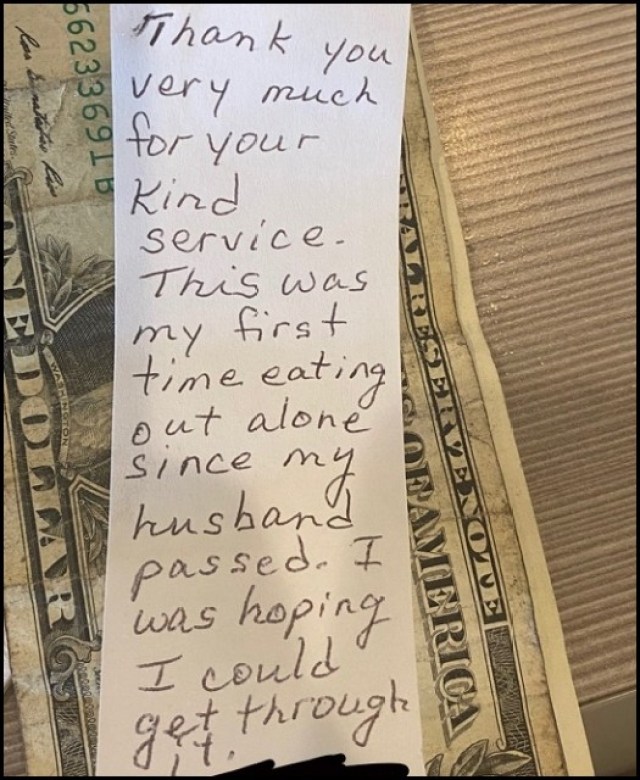 Thank you
very much
for your
kind
service.
This was
my first
time eating
out alone
since my
husband
passed. I
was hoping
I could
get through
it.
ONE DOLLAR
WASHINGTON